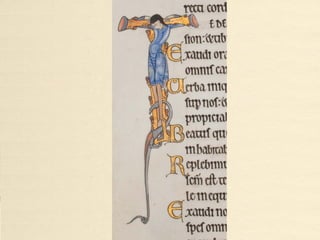 recti cord
T E DE
sion: & tib
Exaudi ora
omnis ca
Uerba iniq
sup nos: &
propicia
Beatus qu
inhabitab
Replebim
scm est te
le in equi
Exaudi no
spes omn